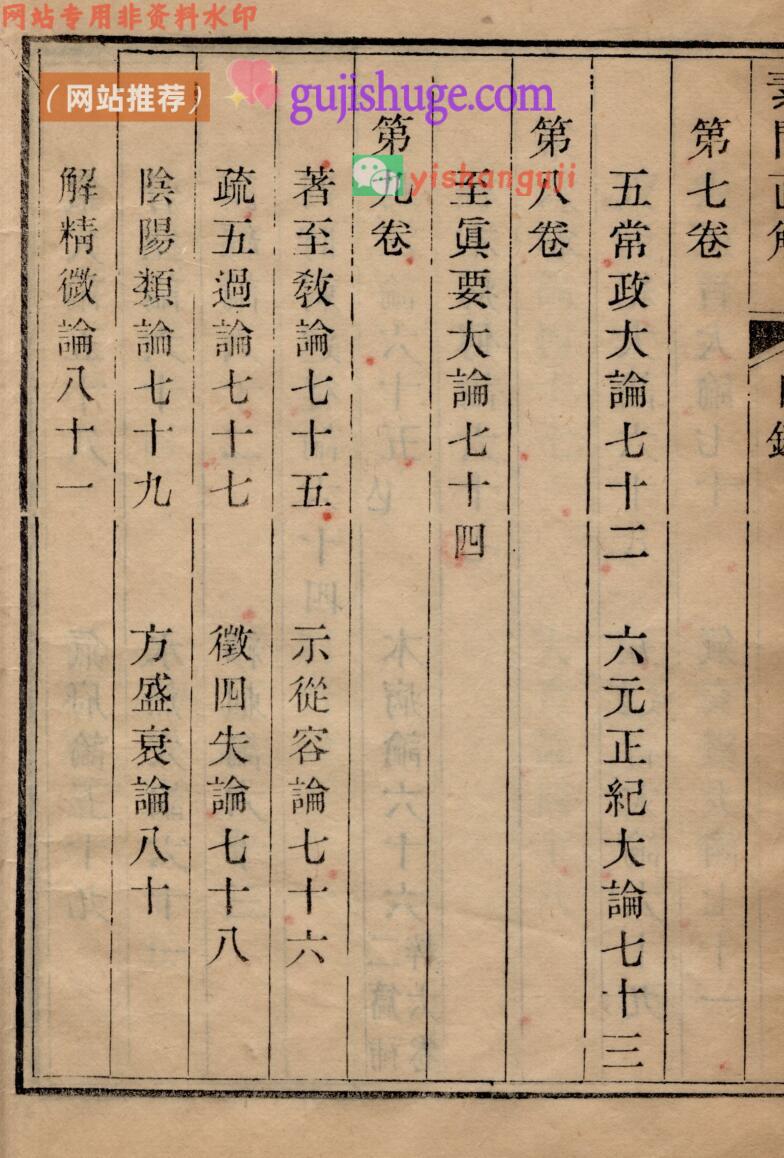 网站专用非资料水印
(网站推荐)
gujishuge.com
yishanguji
素問直解
目錄
第七卷
五常政大論七十二 六元正紀大論七十三
第八卷
至眞要大論七十四
第九卷
著至敎論七十五 示從容論七十六
疏五過論七十七 徵四失論七十八
陰陽類論七十九 方盛衰論八十
解精微論八十一